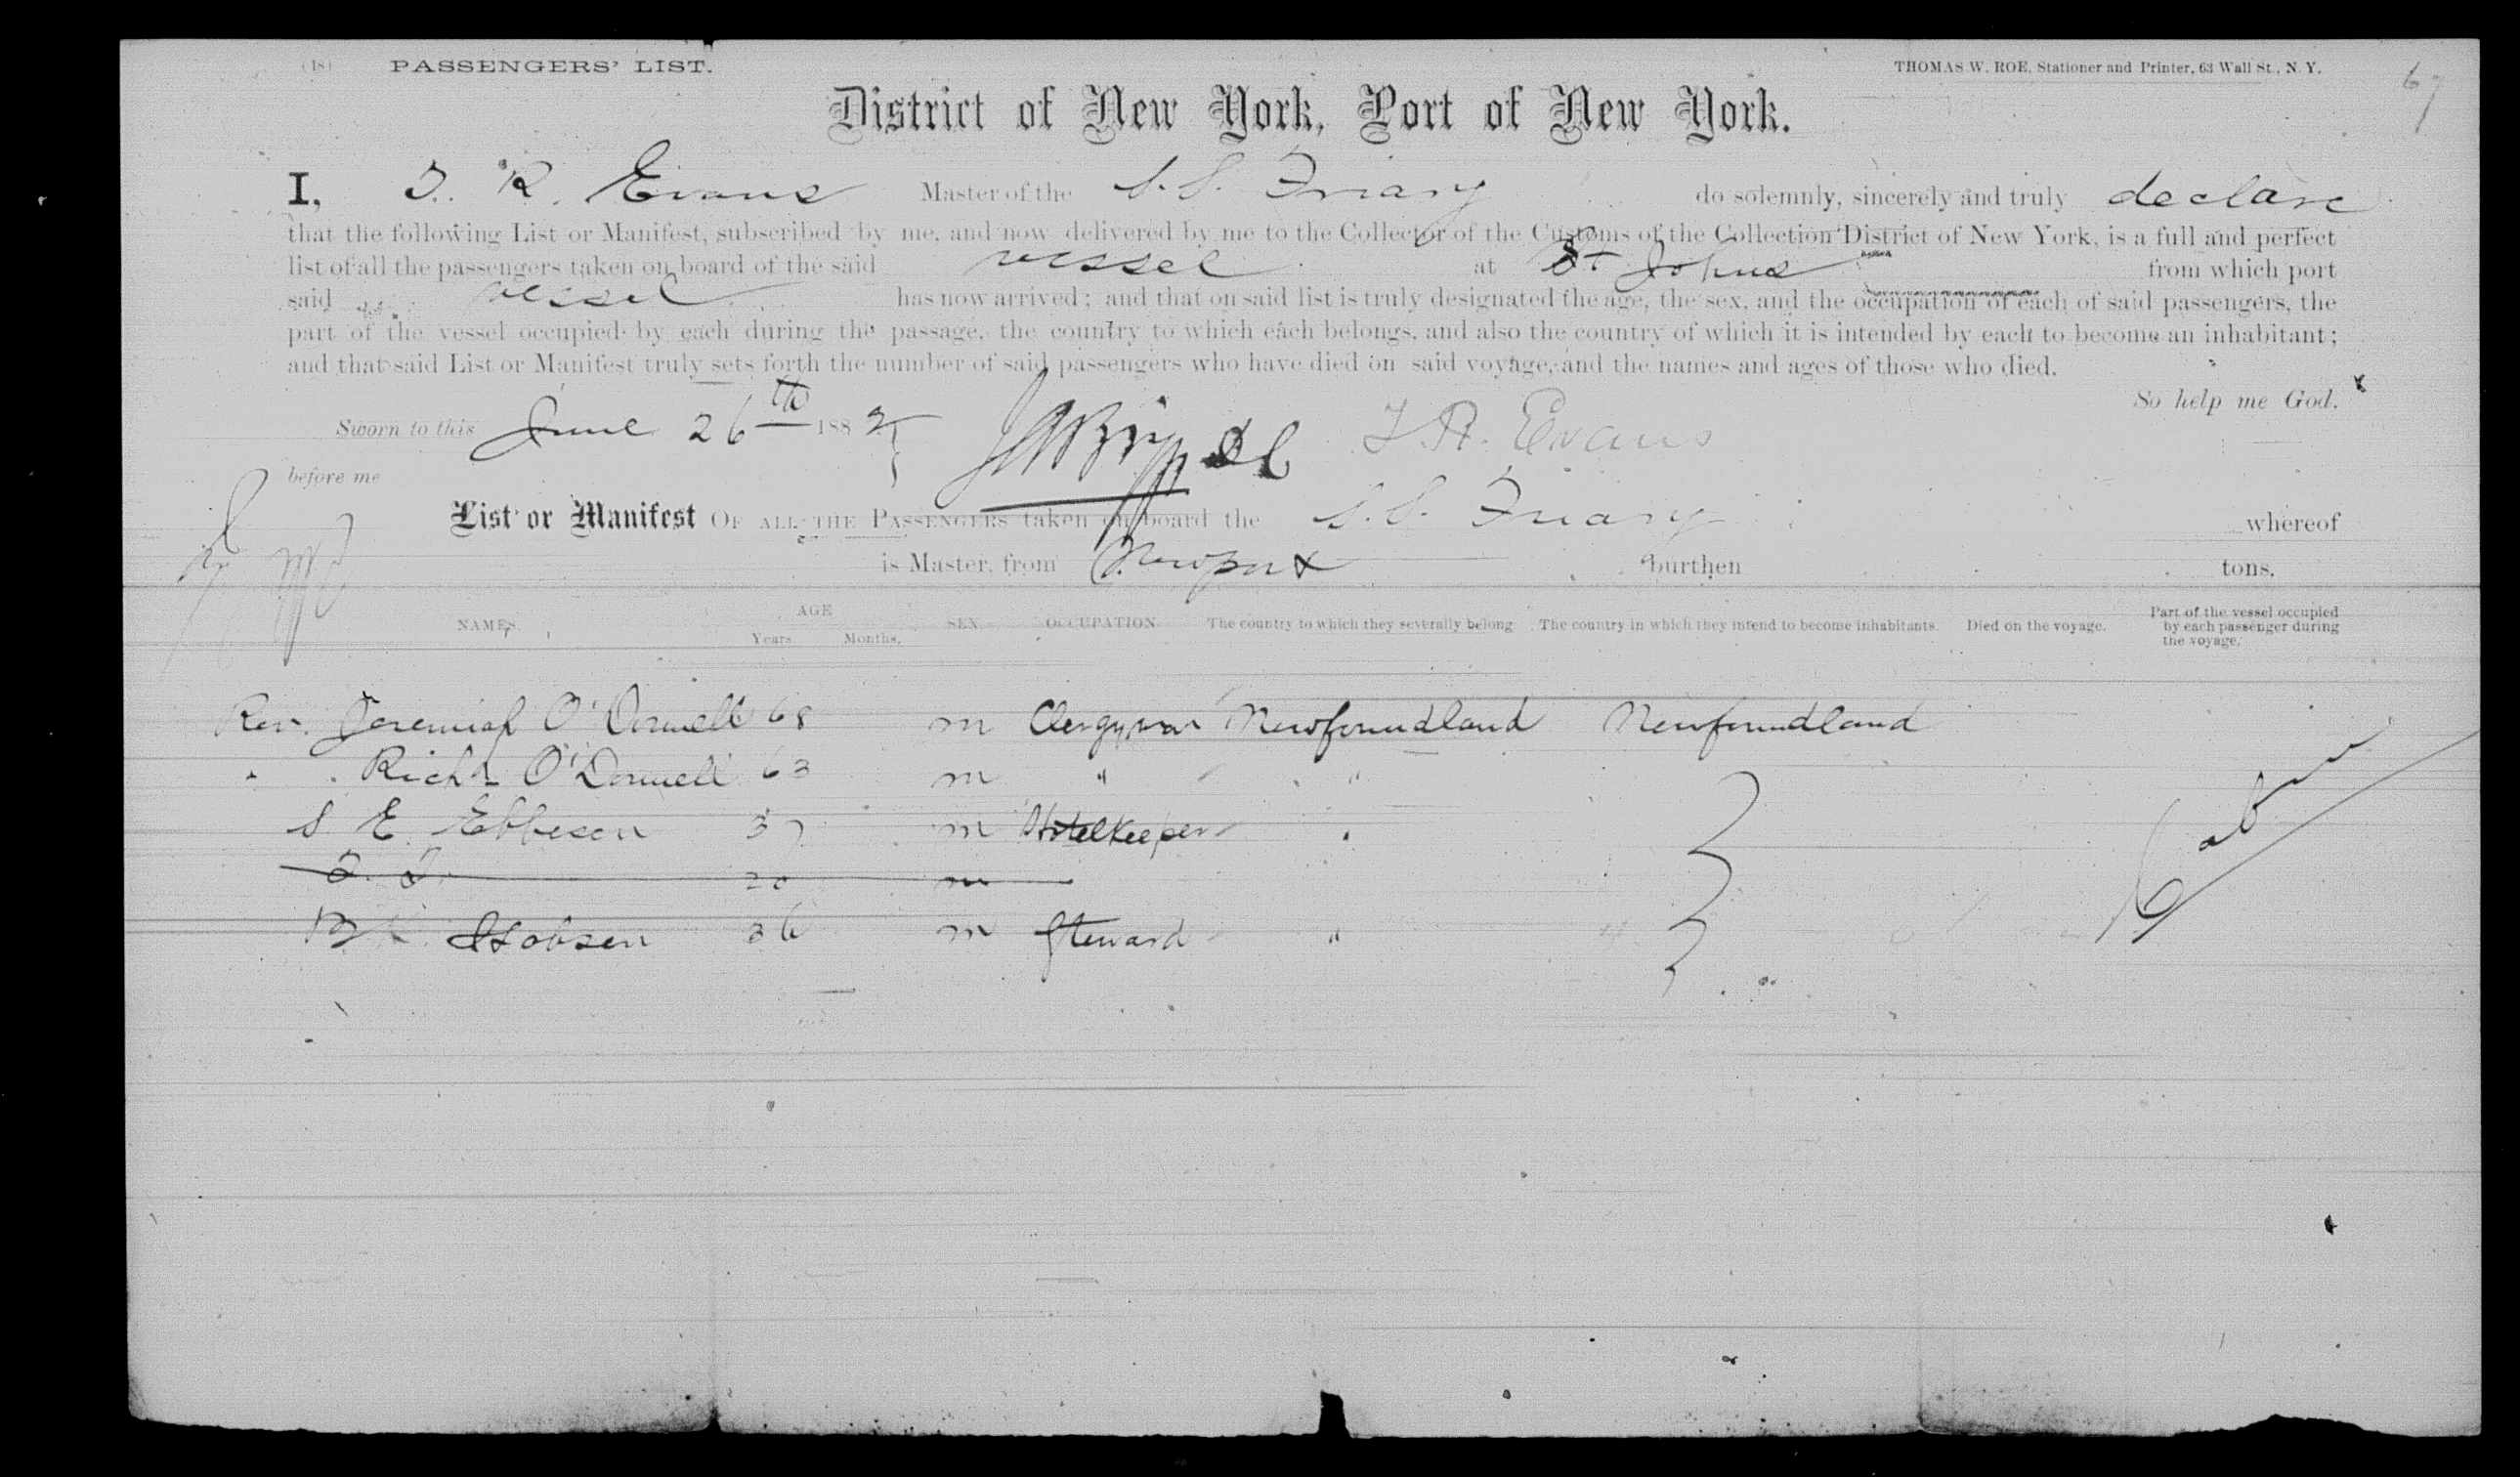 (48) PASSENGERS' LIST. THOMAS W. ROE, Stationer and Printer, 63 Wall St., N. Y. 67
District of New York, Port of New York.
I, T. R. Evans Master of the S.S. Friary do solemnly, sincerely and truly declare
that the following List or Manifest, subscribed by me, and now delivered by me to the Collector of the Customs of the Collection District of New York, is a full and perfect
list of all the passengers taken on board of the said vessel at St Johns from which port
said vessel has now arrived; and that on said list is truly designated the age, the sex, and the occupation of each of said passengers, the
part of the vessel occupied by each during the passage, the country to which each belongs, and also the country of which it is intended by each to become an inhabitant;
and that said List or Manifest truly sets forth the number of said passengers who have died on said voyage, and the names and ages of those who died.
So help me God.
Sworn to this June 26th 188 T.R. Evans
before me
List or Manifest OF ALL THE PASSENGERS taken on board the S.S. Friary whereof
is Master, from Newport burthen tons.
NAMES. AGE Years. Months. SEX. OCCUPATION The country to which they severally belong The country in which they intend to become inhabitants. Died on the voyage. Part of the vessel occupied by each passenger during the voyage.
Rev. Jeremiah O'Donnell 68 m Clergyman Newfoundland Newfoundland
" " Richd O'Donnell 63 m " "
S E Ebbesen 37 m Hotelkeeper " Cabin
20 m
36 m Steward "